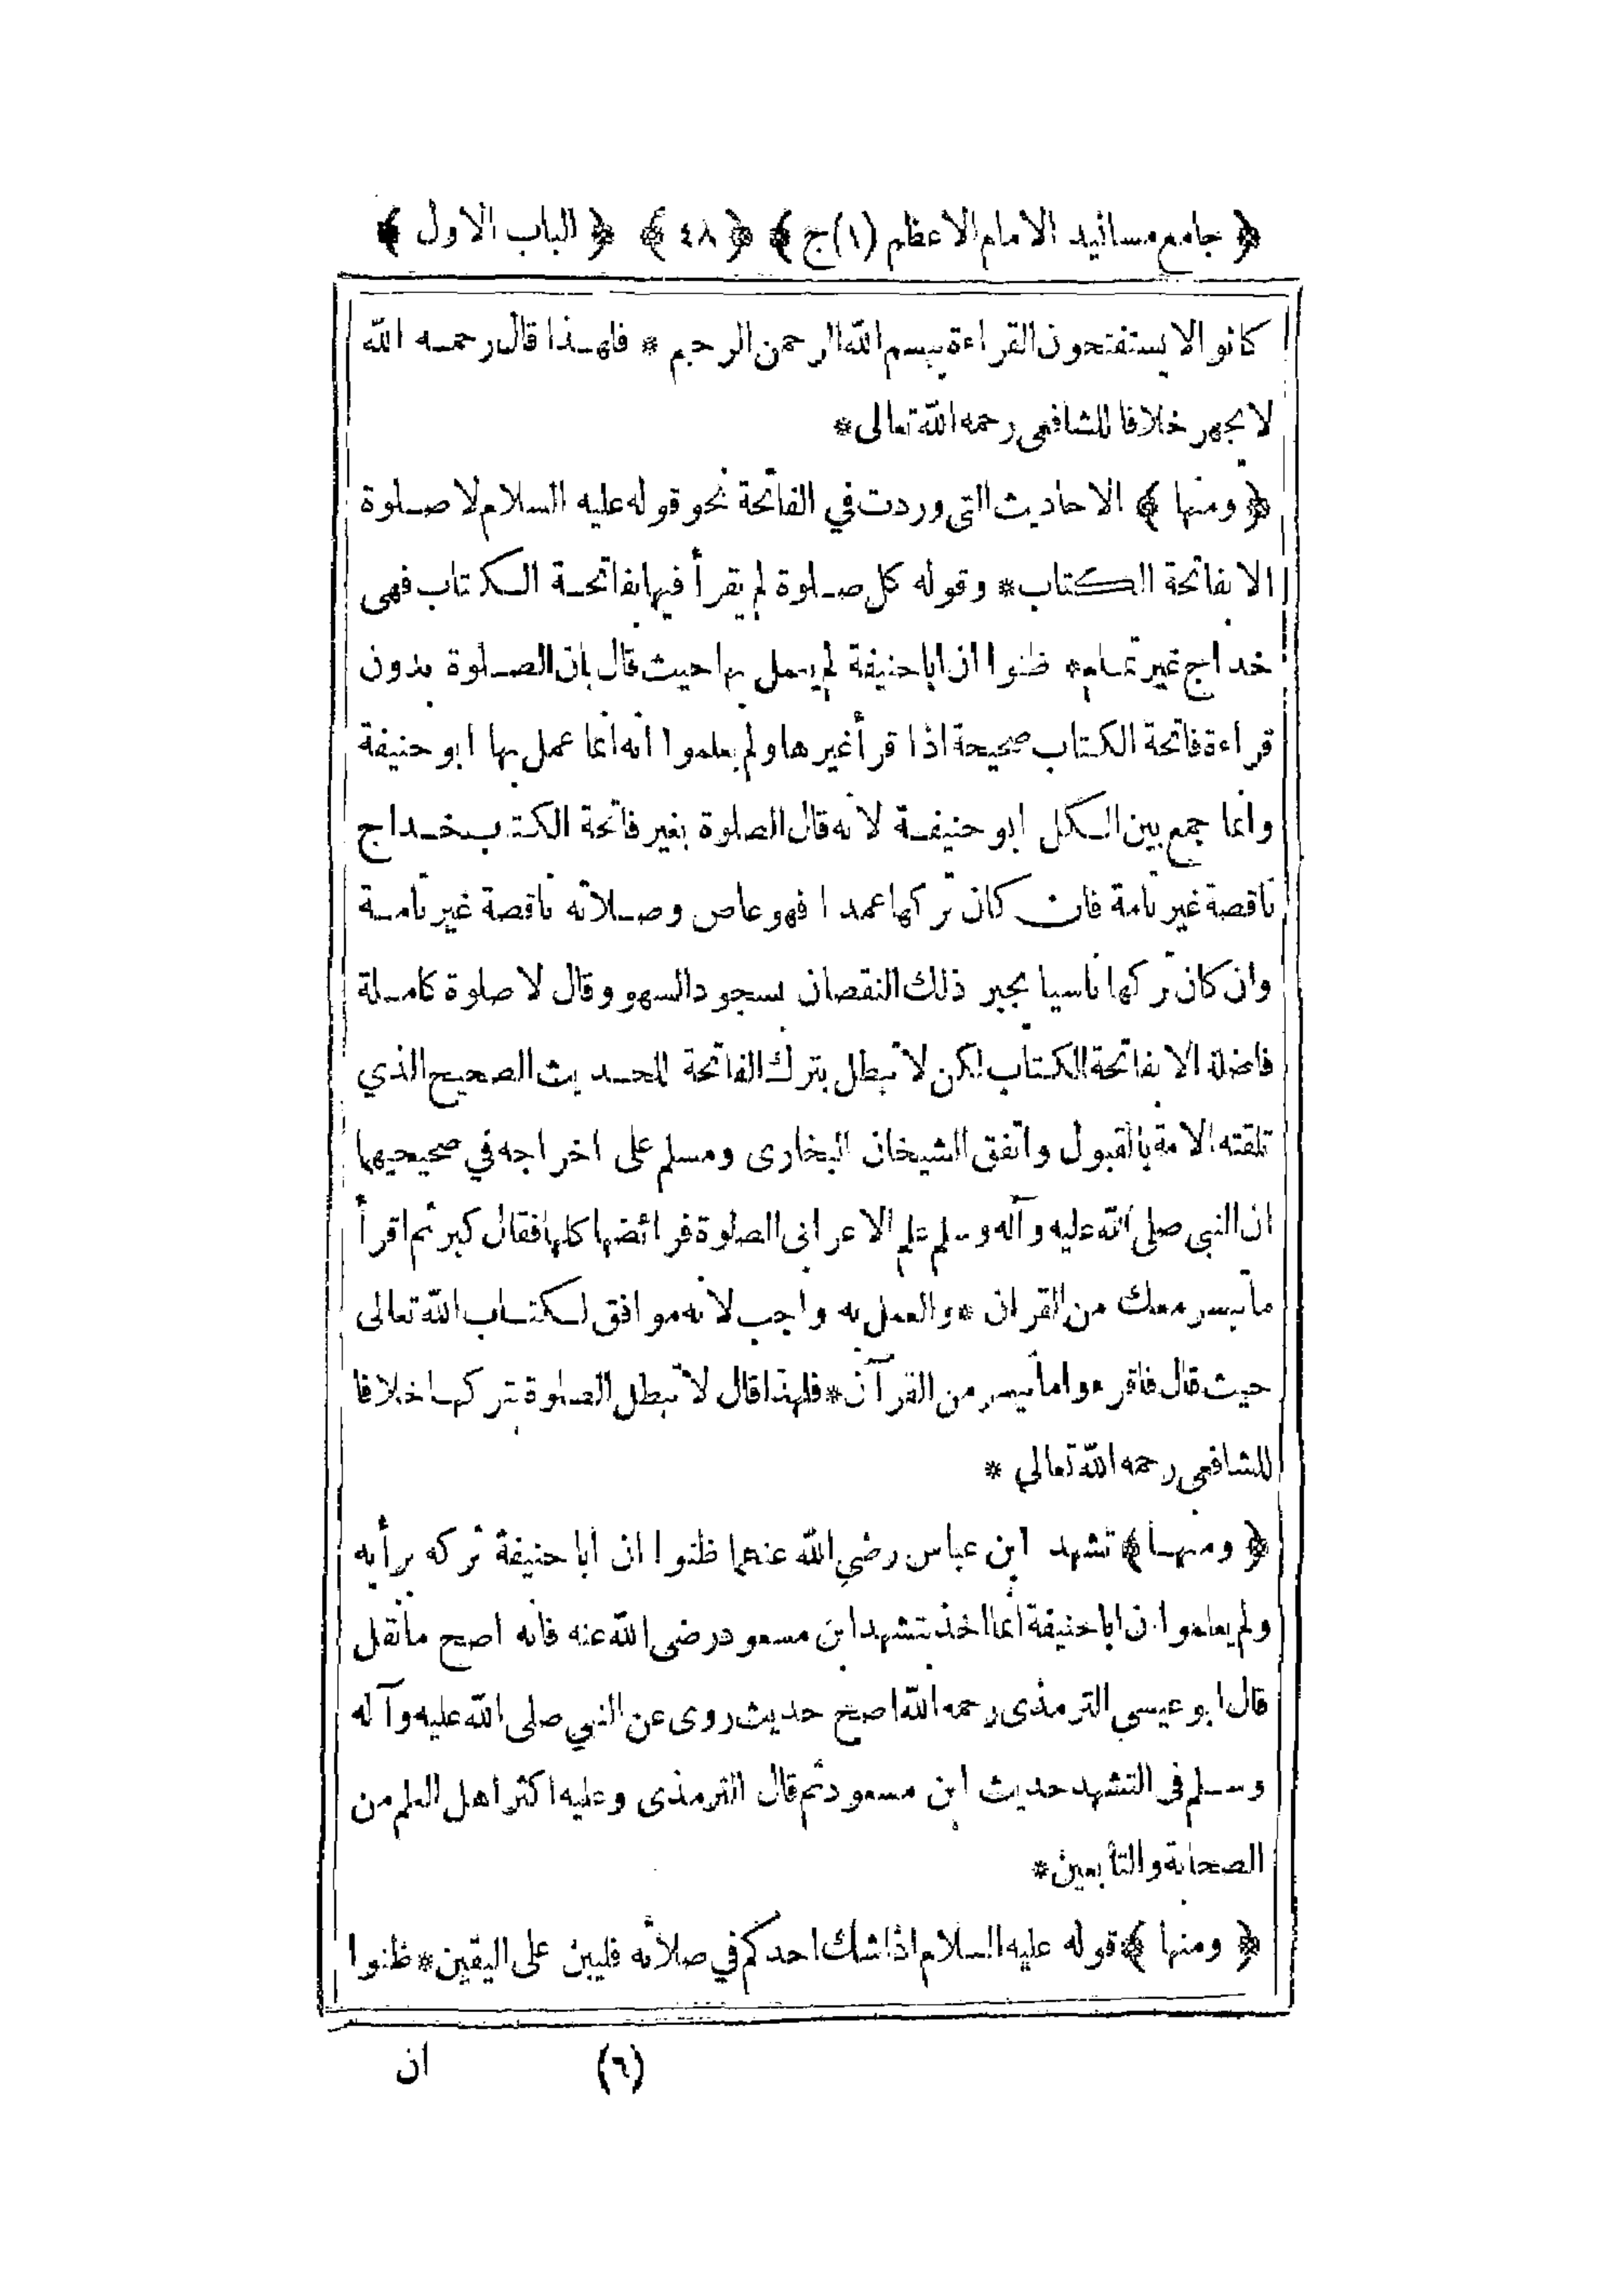 ﴿ جامع مسانيد الامام الاعظم (١) ج ﴾ ﴿ ٤٨ ﴾ ﴿ الباب الاول ﴾
كانوا لا يستفتحون القراءة ببسم الله الرحمن الرحيم * فلهذا قال رحمه الله
لا يجهر خلافا للشافعى رحمه الله تعالى *
﴿ ومنها ﴾ الاحاديث التى وردت في الفاتحة نحو قوله عليه السلام لا صلوة
الا بفاتحة الكتاب * وقوله كل صلوة لم يقرأ فيها بفاتحة الكتاب فهى
خداج غير تمام * ظنوا ان ابا حنيفة لم يعمل بها حيث قال بان الصلوة بدون
قراءة فاتحة الكتاب صحيحة اذا قرأ غيرها ولم يعلموا انه انما عمل بها ابو حنيفة
وانما جمع بين الكل ابو حنيفة لانه قال الصلوة بغير فاتحة الكتاب خداج
ناقصة غير تامة فان كان تركها عمدا فهو عاص وصلاته ناقصة غير تامة
وان كان تركها ناسيا يجبر ذلك النقصان بسجود السهو وقال لا صلوة كاملة
فاضلة الا بفاتحة الكتاب لكن لا تبطل بترك الفاتحة للحديث الصحيح الذي
تلقته الامة بالقبول واتفق الشيخان البخارى ومسلم على اخراجه في صحيحيهما
ان النبى صلى الله عليه وآله وسلم علم الاعرابى الصلوة فرائضها كلها فقال كبر ثم اقرأ
ما تيسر معك من القران * والعمل به واجب لانه موافق لكتاب الله تعالى
حيث قال فاقرءوا ما تيسر من القرآن * فلهذا قال لا تبطل الصلوة بتركها خلافا
للشافعى رحمه الله تعالى *
﴿ ومنها ﴾ تشهد ابن عباس رضي الله عنهما ظنوا ان ابا حنيفة تركه برأيه
ولم يعلموا ان ابا حنيفة انما اخذ بتشهد ابن مسعود رضى الله عنه فانه اصح ما نقل
قال ابو عيسى الترمذى رحمه الله اصح حديث روى عن النبي صلى الله عليه وآله
وسلم فى التشهد حديث ابن مسعود ثم قال الترمذى وعليه اكثر اهل العلم من
الصحابة والتابعين *
﴿ ومنها ﴾ قوله عليه السلام اذا شك احدكم في صلاته فليبن على اليقين * ظنوا
(٦) ان